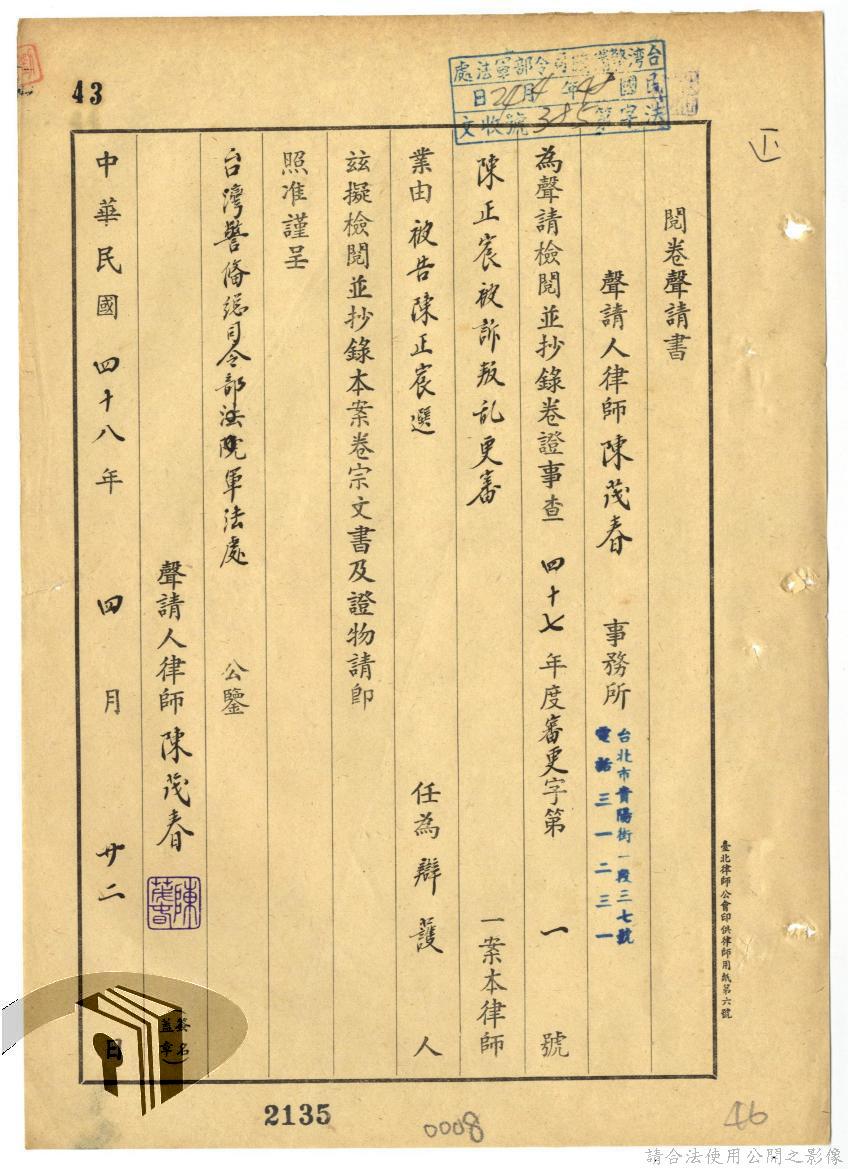 43
台灣警備總司令部軍法處
民國48年4月24日
法字第385號收文
閱卷聲請書
聲請人律師陳茂春 事務所 台北市貴陽街一段三七號
電話三一二三一
為聲請檢閱並抄錄卷證事查 四十七 年度審更字第 一 號
陳正宸被訴叛乱更審 一案本律師
業由 被告陳正宸選 任為辯護人
茲擬檢閱並抄錄本案卷宗文書及證物請卽
照准謹呈
台灣警備總司令部軍法處 公鑒
聲請人律師陳茂春
陳茂春
(簽名蓋章)
中華民國 四十八 年 四 月 廿二 日
臺北律師公會印供律師用紙第六號
2135
0008
46
請合法使用公開之影像